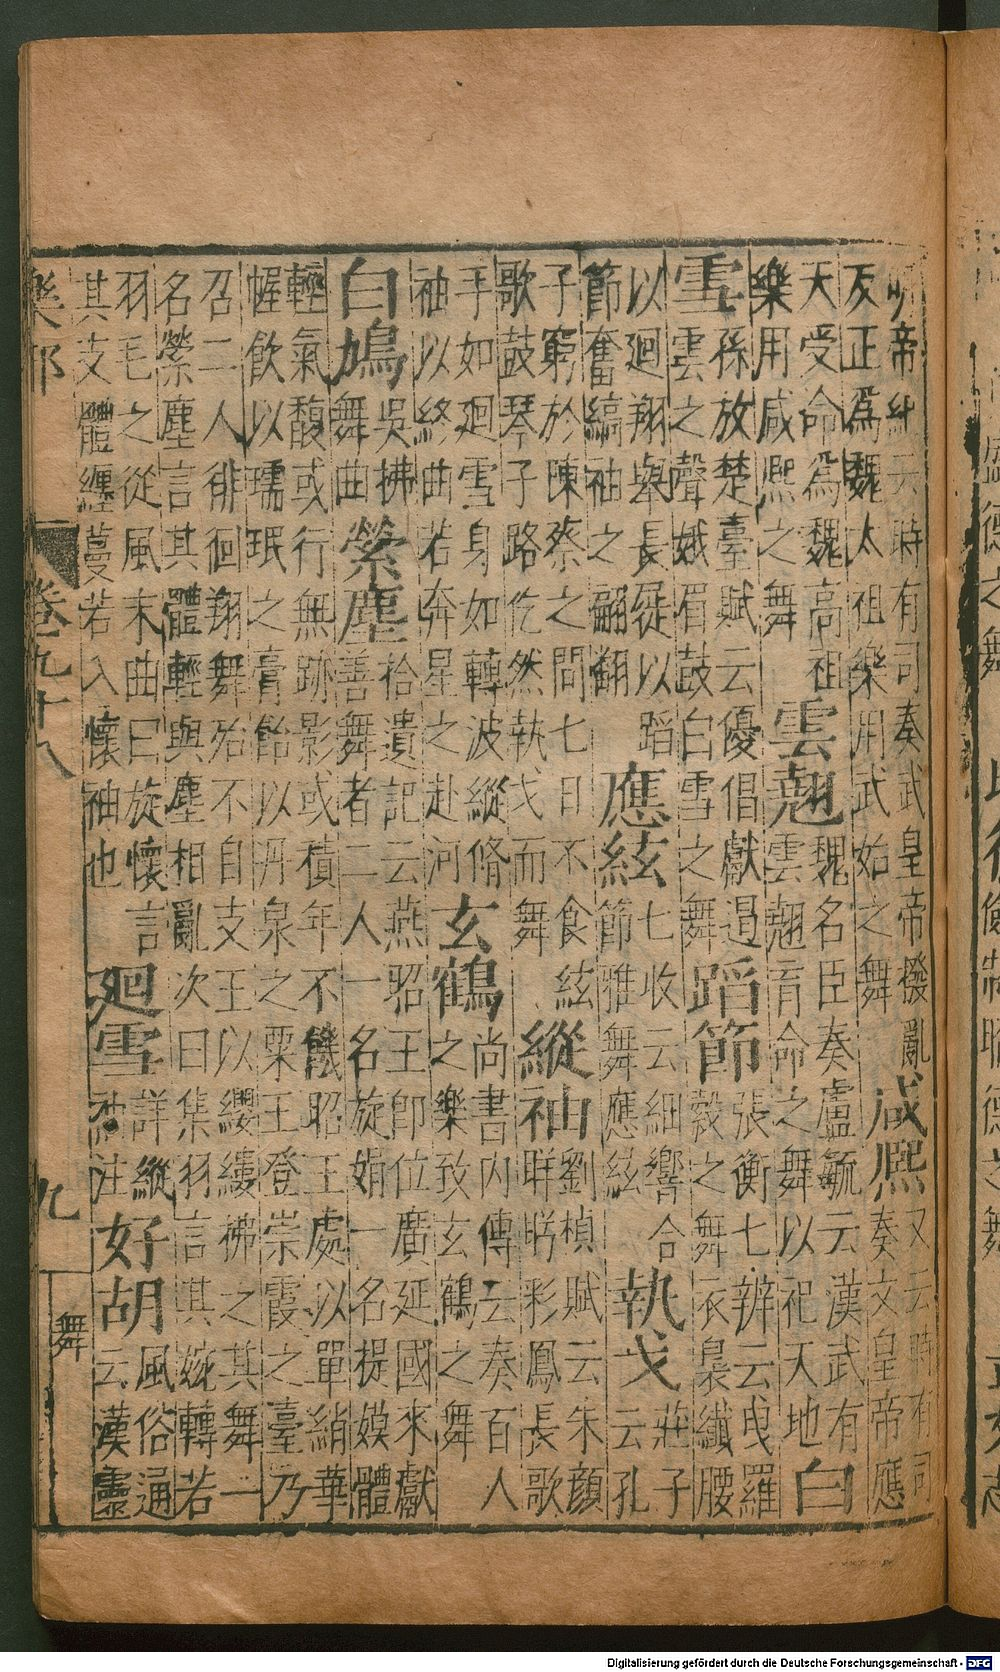 明帝紀云時有司奏武皇帝撥亂反正爲魏太祖樂用武始之舞咸熙又云時有司奏文皇帝應
天受命爲魏高祖樂用咸熙之舞雲翹魏名臣奏盧毓云漢武有雲翹育命之舞以祀天地白
雪孫放楚臺賦云優倡獻遏雲之聲娥眉鼓白雪之舞蹈節張衡七辨云曵羅縠之舞衣裊纖腰
以廻翔舉長以蹈節奮縞袖之翩翻應絃七收云細響合節雅舞應絃執戈莊子云孔
子窮於陳蔡之間七日不食絃歌鼓琴子路仡然執戈而舞縱袖劉楨賦云朱顔眄彩鳳長歌
手如廻雪身如轉波縱脩袖以終曲若奔星之赴河玄鶴尚書内傳云奏百人之樂致玄鶴之舞
白鳩吳拂舞曲縈塵拾遺記云燕昭王卽位廣延國來獻善舞者二人一名旋娟一名提嫫體
輕氣馥或行無跡影或積年不饑昭王處以單綃華幄飲以瓀珉之膏飴以丹泉之粟王登崇霞之臺乃
召二人徘徊翔舞殆不自支王以纓縷拂之其舞一名縈塵言其體輕與塵相亂次曰集羽言其婉轉若
羽毛之從風末曲曰旋懷言其支體纏蔓若入懷袖也廻雪詳縱袖注好胡風俗通云漢靈
樂部 卷九十八 九 舞
Digitalisierung gefördert durch die Deutsche Forschungsgemeinschaft - DFG